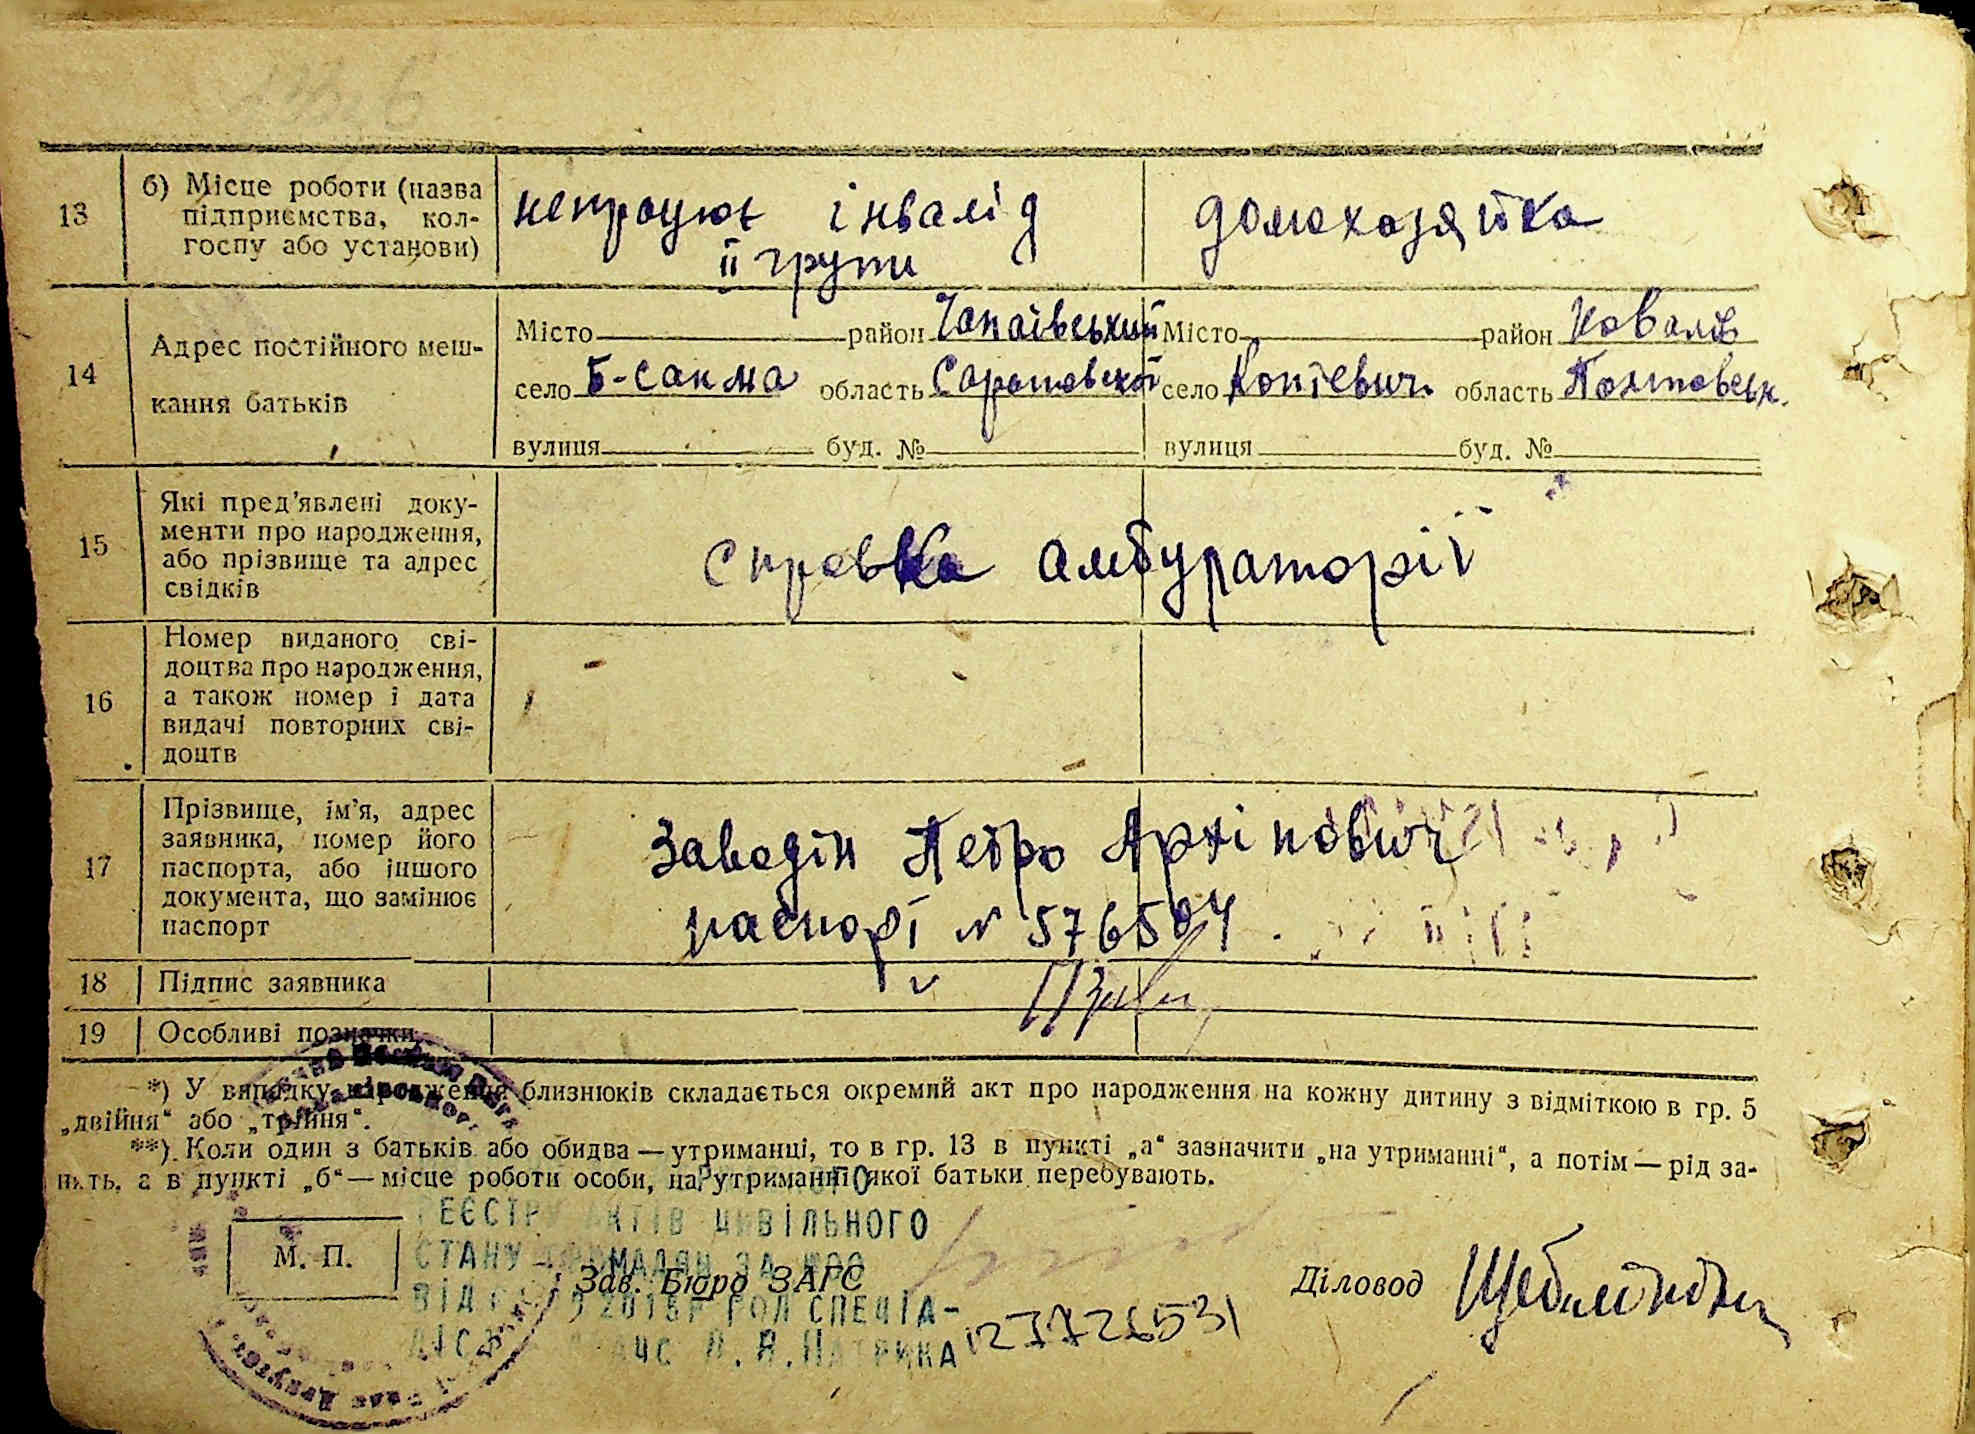 13
б) Місце роботи (назва
підприємства, кол-
госпу або установи)
непрацює інвалід
ІІ групи
домохозяйка
14
Адрес постійного меш-
кання батьків
Місто район Чапаївський
село Б-сакма область
вулиця буд. №
Місто район
село область
вулиця буд. №
15
Які пред'явлені доку-
менти про народження,
або прізвище та адрес
свідків
справка амбураторії
16
Номер виданого сві-
доцтва про народження,
а також номер і дата
видачі повторних сві-
доцтв
17
Прізвище, ім'я, адрес
заявника, номер його
паспорта, або іншого
документа, що замінює
паспорт
Заводін Петро Архіпович
паспорт № 576504
18
Підпис заявника
19
Особливі позначки
*) У випадку народження близнюків складається окремий акт про народження на кожну дитину з відміткою в гр. 5
„двійня“ або „трійня“.
**) Коли один з батьків або обидва — утриманці, то в гр. 13 в пункті „а“ зазначити „на утриманні“, а потім — рід за-
нять, а в пункті „б“ — місце роботи особи, на утриманні якої батьки перебувають.
РЕЄСТРУ АКТІВ ЦИВІЛЬНОГО
СТАНУ ГРОМАДЯН ЗА
М. П.
Зав. Бюро ЗАГС
Діловод
ГОЛ СПЕЦІА-